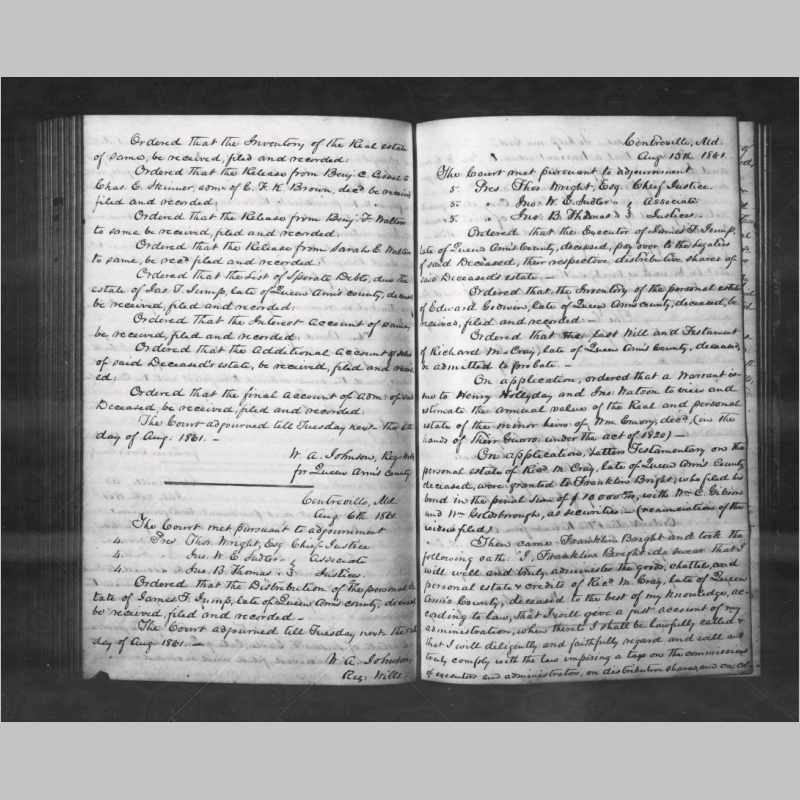 Ordered that the Inventory of the Real estate
of same, be received, filed and recorded.
Ordered that the Release from Benj. C.
Chas. C. Skinner, some of E. F. K. Brown, decd be received
filed and recorded.
Ordered that the Release from Benj. F. Walters
to same be received, filed and recorded.
Ordered that the Release from Sarah E. Walters
to same, be recd filed and recorded.
Ordered that the List of Sperate Debts, due the
estate of Jas. T. Jump, late of Queen Ann's county, deceased
be received, filed and recorded.
Ordered that the Interest Account of same,
be received, filed and recorded.
Ordered that the Additional Account of Sales
of said Deceased's estate, be received, filed and record-
ed.
Ordered that the final Account of Adm. of said
Deceased, be received, filed and recorded.
The Court adjourned till Tuesday next the 6th
day of Aug. 1861. —
W. A. Johnson, Reg. Wills
for Queen Ann's County
Centreville, Md.
Aug. 6th 1861.
The Court met pursuant to adjournment
4. Pres. Thos. Wright, Esq. Chief Justice
4. " Jno. W. E. Sudler } Associate
4. " Jno. B. Thomas } Justices
Ordered that the Distribution of the personal es-
tate of James T. Jump, late of Queen Ann's county, deceased
be received, filed and recorded —
The Court adjourned till Tuesday next the 13th
day of Aug. 1861. —
W. A. Johnson
Reg. Wills
Centreville, Md.
Aug 13th 1861.
The Court met pursuant to adjournment
5. Pres. Thos. Wright, Esq. Chief Justice
5. " Jno. W. E. Sudler } Associate
5. " Jno. B. Thomas } Justices.
Ordered that the Executor of James T. Jump,
late of Queen Ann's County, deceased, pay over to the legatees
of said Deceased, their respective distributive shares of
said Deceased's estate. —
Ordered that the Inventory of the personal estate
of Edward Godwin, late of Queen Ann's county, deceased, be
received, filed and recorded.
Ordered that the last Will and Testament
of Richard McCray, late of Queen Ann's County, deceased,
be admitted to probate. —
On application, ordered that a warrant is-
sue to Henry Hollyday and Jno. Watson to view and
estimate the annual value of the Real and personal
estate of the minor heirs of Wm Emory, decd, (in the
hands of their Guarn. under the act of 1820) —
On application, Letters Testamentary on the
personal estate of Richd McCray, late of Queen Ann's County
deceased, were granted to Franklin Bright, who filed his
bond in the penal sum of $10,000, with Wm C.
and Wm Goldsborough, as securities. — (renunciation of the
widow filed)
Then came Franklin Bright and took the
following oath "I, Franklin Bright do swear that I
will well and truly administer the goods, chattels, and
personal estate & credits of Richd McCray, late of Queen
Ann's County, deceased to the best of my knowledge, ac-
cording to law, that I will give a just account of my
administration, when thereto I shall be lawfully called &
that I will diligently and faithfully regard and well and
truly comply with the law imposing a tax on the commissions
of executors and administrators, on distributive shares, and on col-